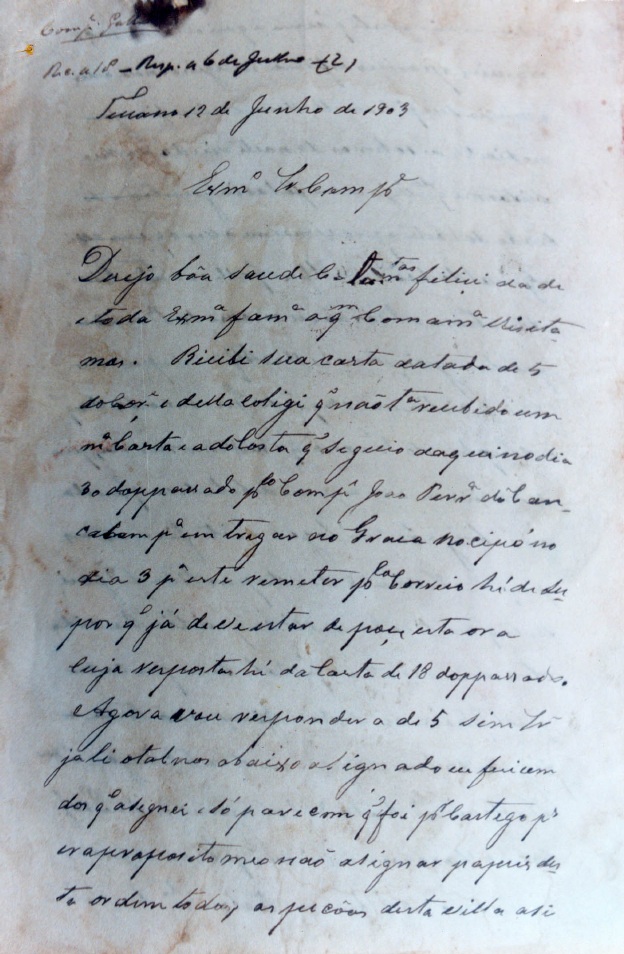 Comp.e
Rc. a 18 - Resp. a 6 de Julho (2)
12 de Junho de 1903
Exmº Sr. Compe
Dezejo bôa saude e felicidade
e toda Exmª famª a qm com a mª visita-
mos. Recibi sua carta datada de 5
do corr. e della coligi qe não tª recibido um
mª Carta e a do Costa qe seguio daqui no dia
30 do ppassado plo Compe João Ferrª do Can-
pª entregar no Graça no cipó no
dia 3 pª este remeter plo Correio hé de su-
por qe já deve estar de poçe esta ora
cuja resposta hé da Carta de 18 do ppassado.
Agora vou responder a de 5 sim Sr
ja li o tal nos abaixo asignado eu fui um
dos qe asignei só parem qe foi pr Castego pr
era preposito meu não asignar papeis des-
ta ordem todas as peções desta villa asi